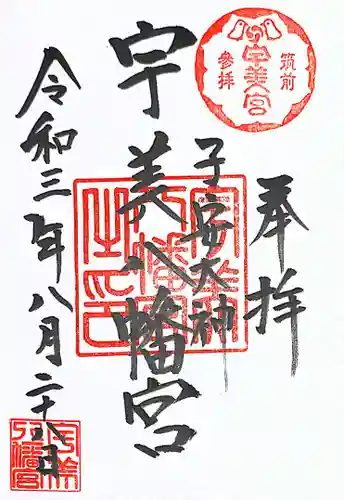 奉拝
子安大神
宇美八幡宮
令和三年八月二十八日
筑前
宇美宮
參拝
宇美八幡宮